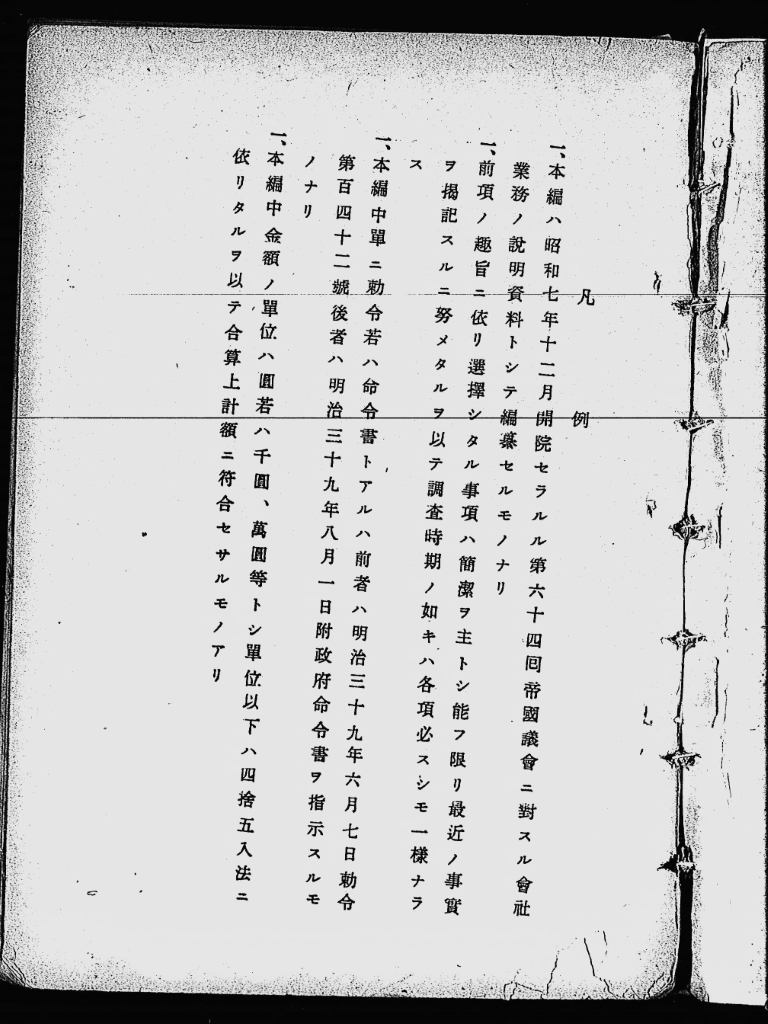 凡例
一、本編ハ昭和七年十二月開院セラルル第六十四囘帝國議會ニ對スル會社
業務ノ說明資料トシテ編纂セルモノナリ
一、前項ノ趣旨ニ依リ選擇シタル事項ハ簡潔ヲ主トシ能フ限リ最近ノ事實
ヲ揭記スルニ努メタルヲ以テ調査時期ノ如キハ各項必スシモ一樣ナラ
ス
一、本編中單ニ勅令若ハ命令書トアルハ前者ハ明治三十九年六月七日勅令
第百四十二號後者ハ明治三十九年八月一日附政府命令書ヲ指示スルモ
ノナリ
一、本編中金額ノ單位ハ圓若ハ千圓、萬圓等トシ單位以下ハ四捨五入法ニ
依リタルヲ以テ合算上計額ニ符合セサルモノアリ